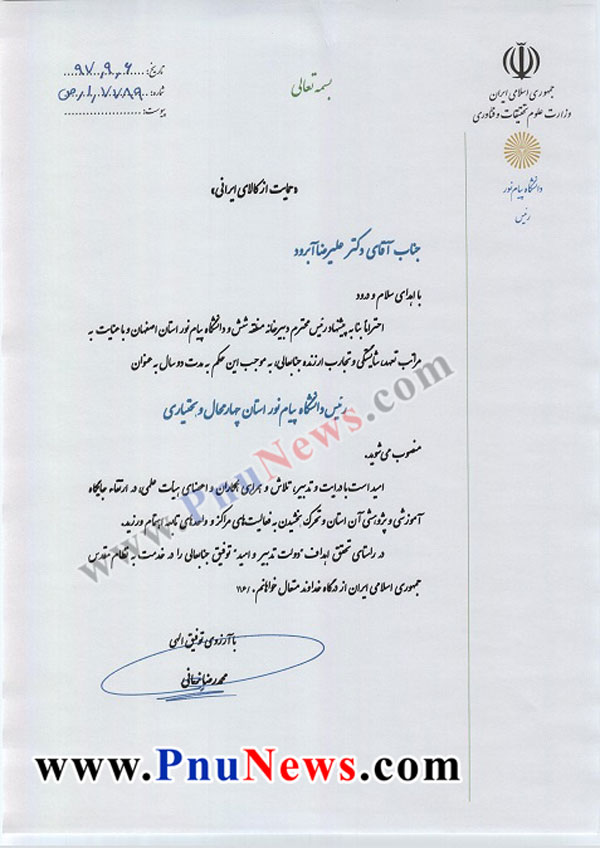 جمهوری اسلامی ایران
وزارت علوم تحقیقات و فناوری
دانشگاه پیام نور
رئیس
بسمه تعالی
تاریخ: ۹۷٫۹٫۶
شماره:
پیوست:
«حمایت از کالای ایرانی»
جناب آقای دکتر علیرضا آبرود
با اهدای سلام و درود
احتراماً بنا به پیشنهاد رئیس محترم دبیرخانه منطقه شش و دانشگاه پیام نور استان اصفهان و با عنایت به
مراتب تعهد، شایستگی و تجارب ارزنده جنابعالی، به موجب این حکم به مدت دو سال به عنوان
رئیس دانشگاه پیام نور استان چهارمحال و بختیاری
منصوب می‌شوید.
امید است با درایت و تدبیر، تلاش و همراهی همکاران و اعضای هیات علمی، در ارتقاء جایگاه
آموزشی و پژوهشی آن استان و تحرک بخشیدن به فعالیت‌های مراکز و واحدهای تابعه اهتمام ورزید.
در راستای تحقق اهداف "دولت تدبیر و امید" توفیق جنابعالی را در خدمت به نظام مقدس
جمهوری اسلامی ایران از درگاه خداوند متعال خواهانم.
با آرزوی توفیق الهی
محمدرضا زمانی
www.PnuNews.com
www.PnuNews.com